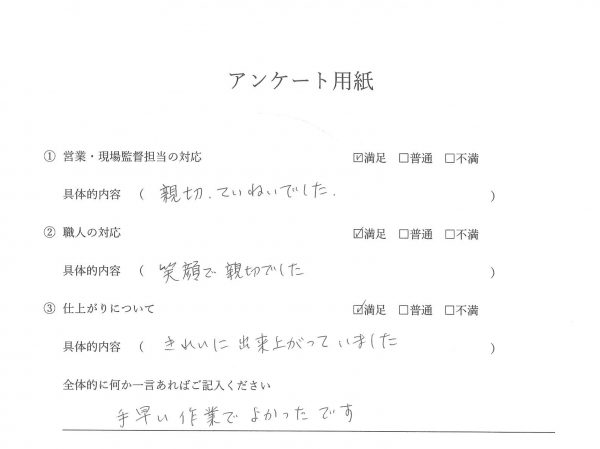 アンケート用紙
① 営業・現場監督担当の対応 ☑満足 ☐普通 ☐不満
具体的内容 ( 親切、ていねいでした. )
② 職人の対応 ☑満足 ☐普通 ☐不満
具体的内容 ( 笑顔で親切でした )
③ 仕上がりについて ☑満足 ☐普通 ☐不満
具体的内容 ( きれいに出来上がっていました )
全体的に何か一言あればご記入ください
手早い作業でよかったです